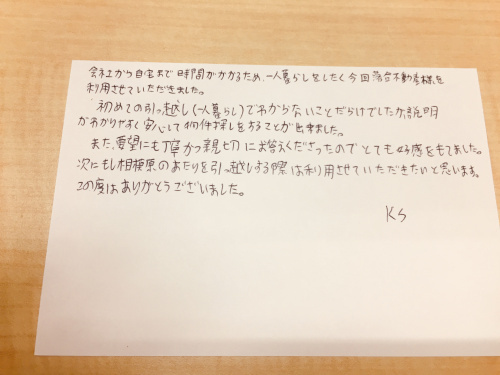 会社から自宅まで時間がかかるため、一人暮らしをしたく今回落合不動産様を
利用させていただきました。
初めての引っ越し(一人暮らし)でわからないことだらけでしたが、説明
がわかりやすく安心して物件探しをすることが出来ました。
また、要望にも丁寧かつ親切にお答えくださったのでとても好感をもてました。
次にもし相模原のあたりを引っ越しする際は利用させていただきたいと思います。
この度はありがとうございました。
KS